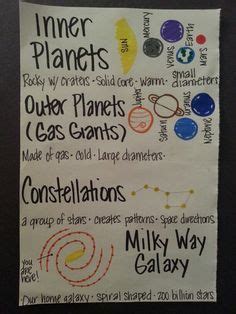 Inner
Planets
SUN
Mercury
Venus
Earth
Mars
Rocky w/ craters · Solid core · warm · small
diameters
Outer Planets
(Gas Giants)
Jupiter
Saturn
Uranus
Neptune
Made of gas · cold · Large diameters
Constellations
a group of stars · creates patterns · space directions
Milky Way
Galaxy
you are here!
Our home galaxy · spiral shaped · 200 billion stars